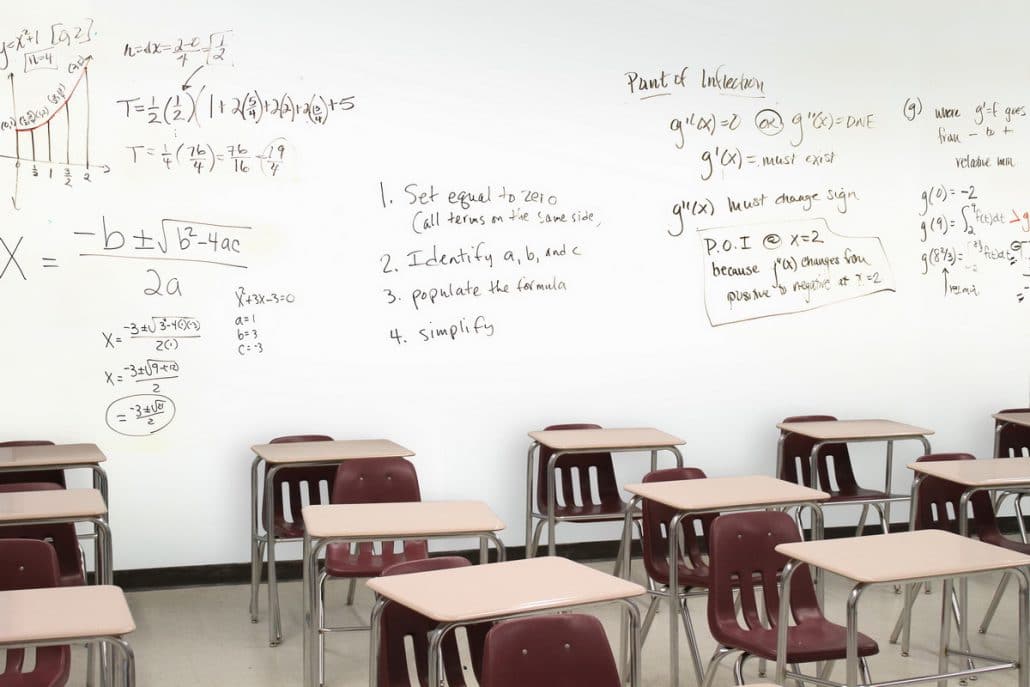 y=x²+1 [0,2]
n=4
h=dx=2-0/4=√1/2
T=1/2(1/2)(1+2(5/4)+2(2)+2(13/4)+5
T=1/4(76/4)=76/16=19/4
0 1/2 1 3/2 2
X = -b±√b²-4ac / 2a
x²+3x-3=0
a=1
b=3
c=-3
X= -3±√3²-4(1)(-3) / 2(1)
X= -3±√9+12 / 2
= -3±√21 / 2
1. Set equal to zero
(all terms on the same side,
2. Identify a, b, and c
3. populate the formula
4. simplify
Point of Inflection
g''(x)=0 OR g''(x)=DNE
g'(x)=must exist
g''(x) must change sign
P.O.I @ x=2
because f''(x) changes from
positive to negative at x=2
(g) where g'=f goes
from - to +
relative min
g(0)=-2
g(9)=∫ f(t)dt
g(8⅔)= f(t)dt
rel min